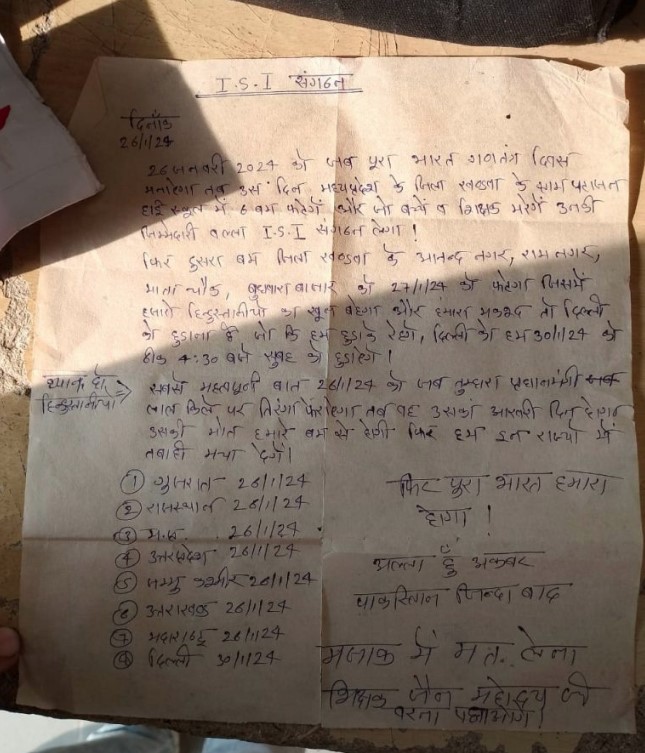 I.S.I संगठन
दिनाँक
26/1/24
26 जनवरी 2024 को जब पूरा भारत गणतंत्र दिवस
मनाऐगा तब उस दिन मध्यप्रदेश के जिला खण्डवा के ग्राम
हाई स्कूल में 6 बम फटेगें और जो बच्चें व शिक्षक मरेगें उनकी
जिम्मेदारी I.S.I संगठन लेगा!
फिर दुसरा बम जिला खण्डवा के आनन्द नगर, राम नगर,
माता चौक, बुधवारा बाजार को 27/1/24 को फटेगा जिसमें
हजारो हिन्दुस्तानीयो का खून बहेगा और हमारा मकसद तो दिल्ली
को उड़ाना है जो कि हम उड़ाके रहेगे, दिल्ली को हम 30/1/24 को
ठीक 4:30 बजे सुबह को उड़ाऐगे!
ध्यान दो
हिन्दुस्तानीयो
सबसे महत्वपूर्ण बात 26/1/24 को जब तुम्हारा प्रधानमंत्री
लाल किले पर तिरंगा फेराऐगा तब वह उसका आखरी दिन होगा
उसकी मौत हमारे बम से होगी फिर हम इन राज्यो में
तबाही मचा देगें।
① गुजरात 26/1/24
② राजस्थान 26/1/24
③ म.प्र. 26/1/24
④ उत्तरप्रदेश 26/1/24
⑤ जम्मु कश्मीर 26/1/24
⑥ उत्तराखण्ड 26/1/24
⑦ 26/1/24
⑧ दिल्ली 30/1/24
फिर पुरा भारत हमारा
होगा!
अल्ला हुँ अकबर
पाकिस्तान जिन्दा बाद
मजाक में मत लेना
शिक्षक जैन महोदय जी
वरना पछताओगे!